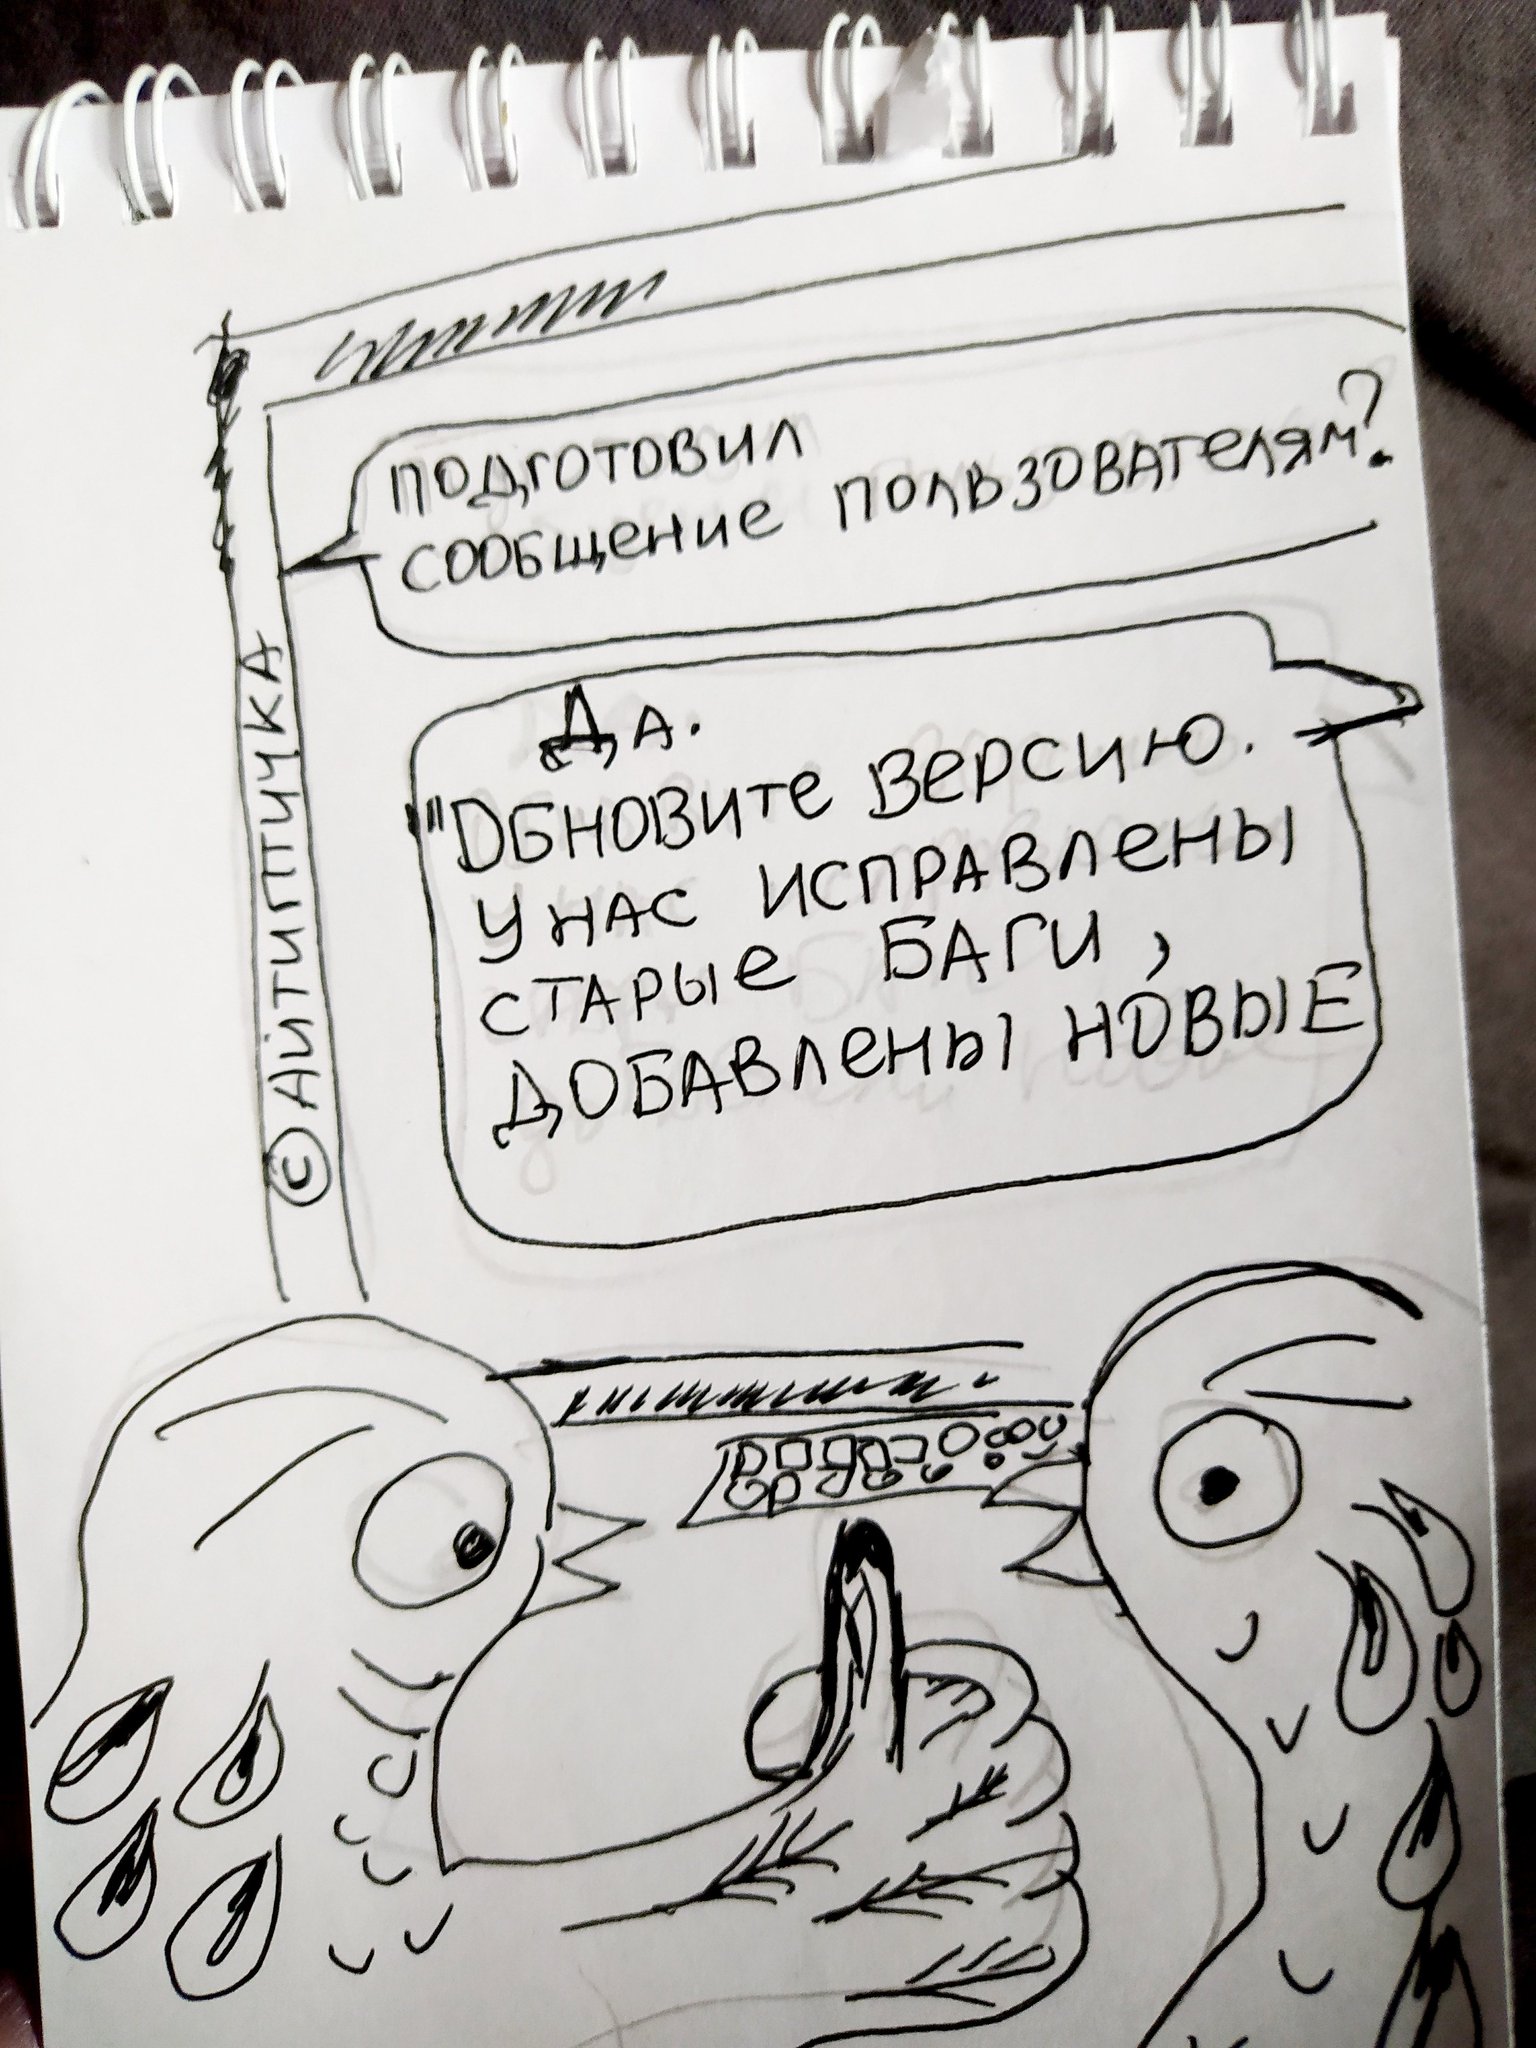 подготовил
сообщение пользователям?
Да.
"Обновите версию.
у нас исправлены
старые баги,
добавлены новые
© Айтиптичка